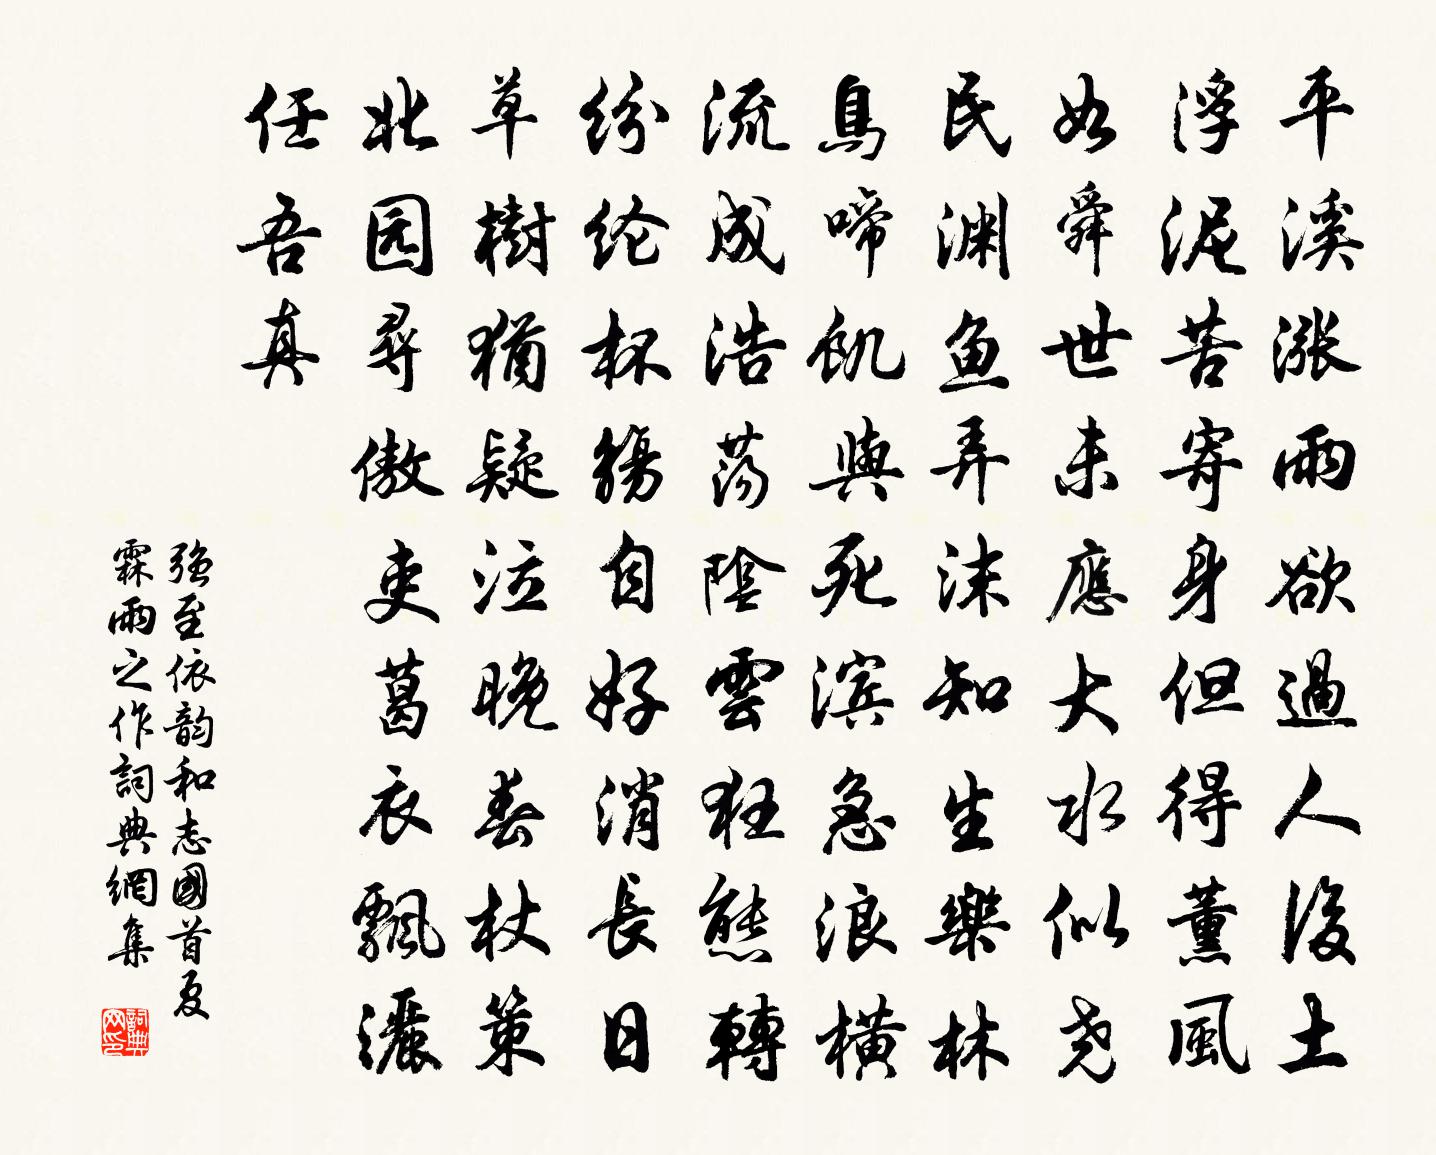 平溪漲雨欲過人後土
浮泥苦寄身但得薰風
如舜世未應大水似堯
民渊鱼弄沫知生樂林
鳥啼飢與死滨急浪橫
流成浩蕩陰雲狂態轉
纷纶杯觴自好消長日
草樹猶疑泣晚春杖策
北园尋傲吏葛衣飄灑
任吾真
強至依韵和志國首夏
霖雨之作詞典網集
詞典网印